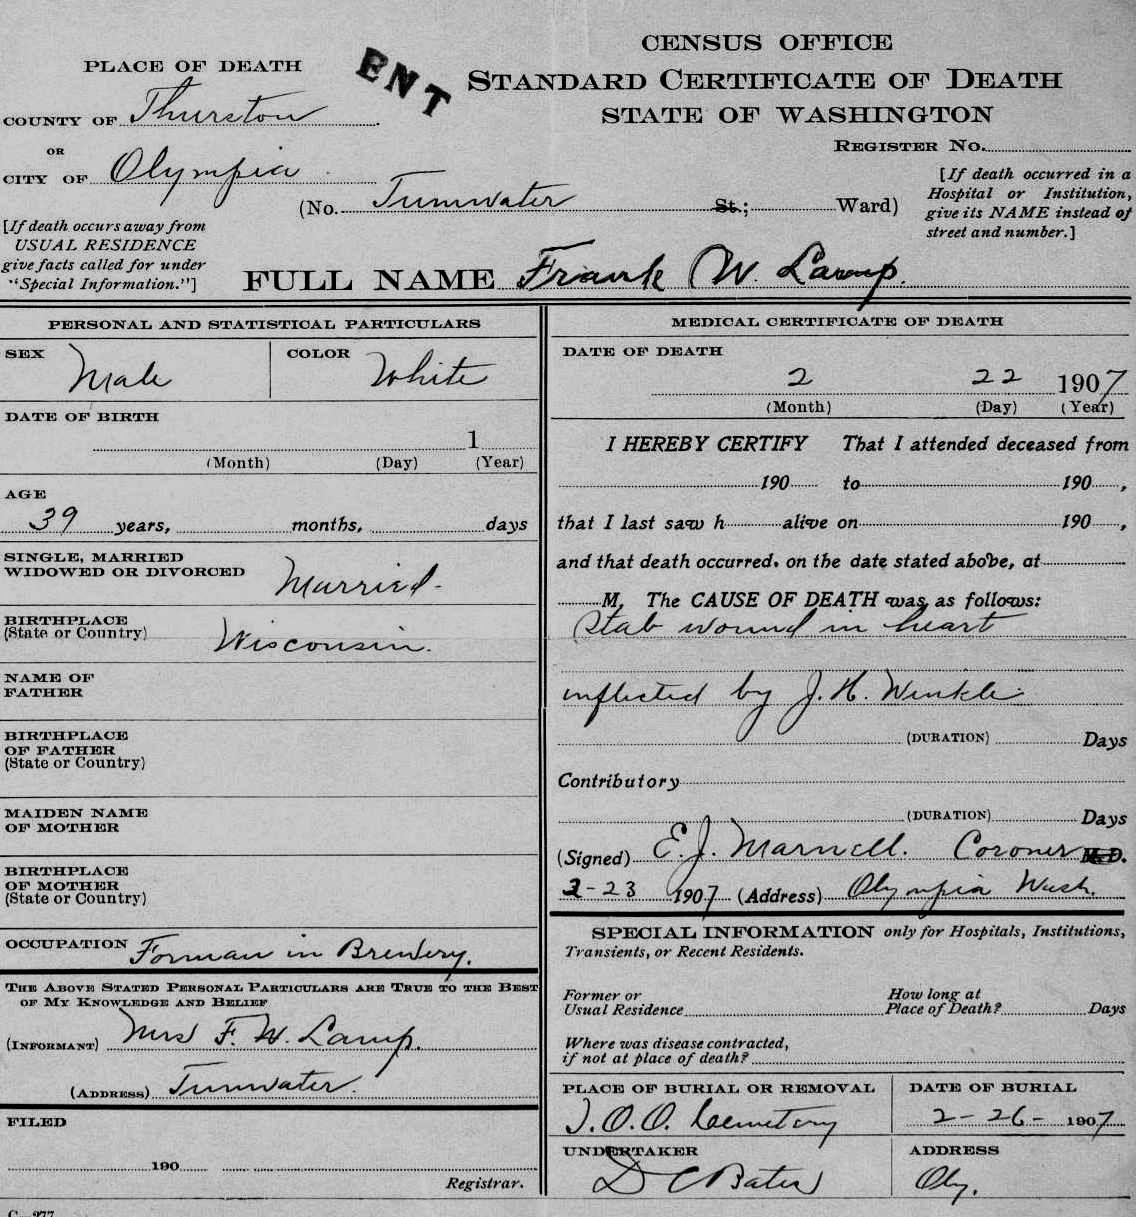 ENT
CENSUS OFFICE
STANDARD CERTIFICATE OF DEATH
STATE OF WASHINGTON
PLACE OF DEATH
COUNTY OF Thurston
OR
CITY OF Olympia
REGISTER No.
(No. Tumwater St.; Ward)
[If death occurred in a
Hospital or Institution,
give its NAME instead of
street and number.]
[If death occurs away from
USUAL RESIDENCE
give facts called for under
"Special Information."]
FULL NAME Frank W. Lamp.
PERSONAL AND STATISTICAL PARTICULARS
SEX Male COLOR White
DATE OF BIRTH
1
(Month) (Day) (Year)
AGE
39 years, months, days
SINGLE, MARRIED
WIDOWED OR DIVORCED Married-
BIRTHPLACE
(State or Country) Wisconsin.
NAME OF
FATHER
BIRTHPLACE
OF FATHER
(State or Country)
MAIDEN NAME
OF MOTHER
BIRTHPLACE
OF MOTHER
(State or Country)
OCCUPATION Forman in Brewery.
THE ABOVE STATED PERSONAL PARTICULARS ARE TRUE TO THE BEST
OF MY KNOWLEDGE AND BELIEF
(INFORMANT) Mrs F. W. Lamp.
(ADDRESS) Tumwater.
FILED
190
Registrar.
C. 277
MEDICAL CERTIFICATE OF DEATH
DATE OF DEATH
2 22 1907
(Month) (Day) (Year)
I HEREBY CERTIFY That I attended deceased from
190 to 190 ,
that I last saw h alive on 190 ,
and that death occurred, on the date stated above, at
M. The CAUSE OF DEATH was as follows:
Stab wound in heart
inflicted by J. H. Winkle.
(DURATION) Days
Contributory
(DURATION) Days
(Signed) E. J. Marnell. Coroner M.D.
2-23 1907 (Address) Olympia Wash.
SPECIAL INFORMATION only for Hospitals, Institutions,
Transients, or Recent Residents.
Former or
Usual Residence
How long at
Place of Death? Days
Where was disease contracted,
if not at place of death?
PLACE OF BURIAL OR REMOVAL
I.O.O. Cemetary
DATE OF BURIAL
2-26- 1907
UNDERTAKER
D C Bates
ADDRESS
Oly.